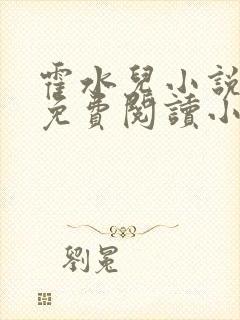 霍水兒小說
免費閱讀小
劉冕